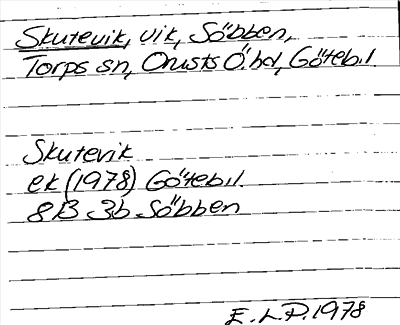 Skutevik, vik, Söbben,
Torps sn, Orusts Ö. hd, Göteb.l
Skutevik
ek (1978) Göteb.l.
8B 3b Söbben
E.L.P. 1978